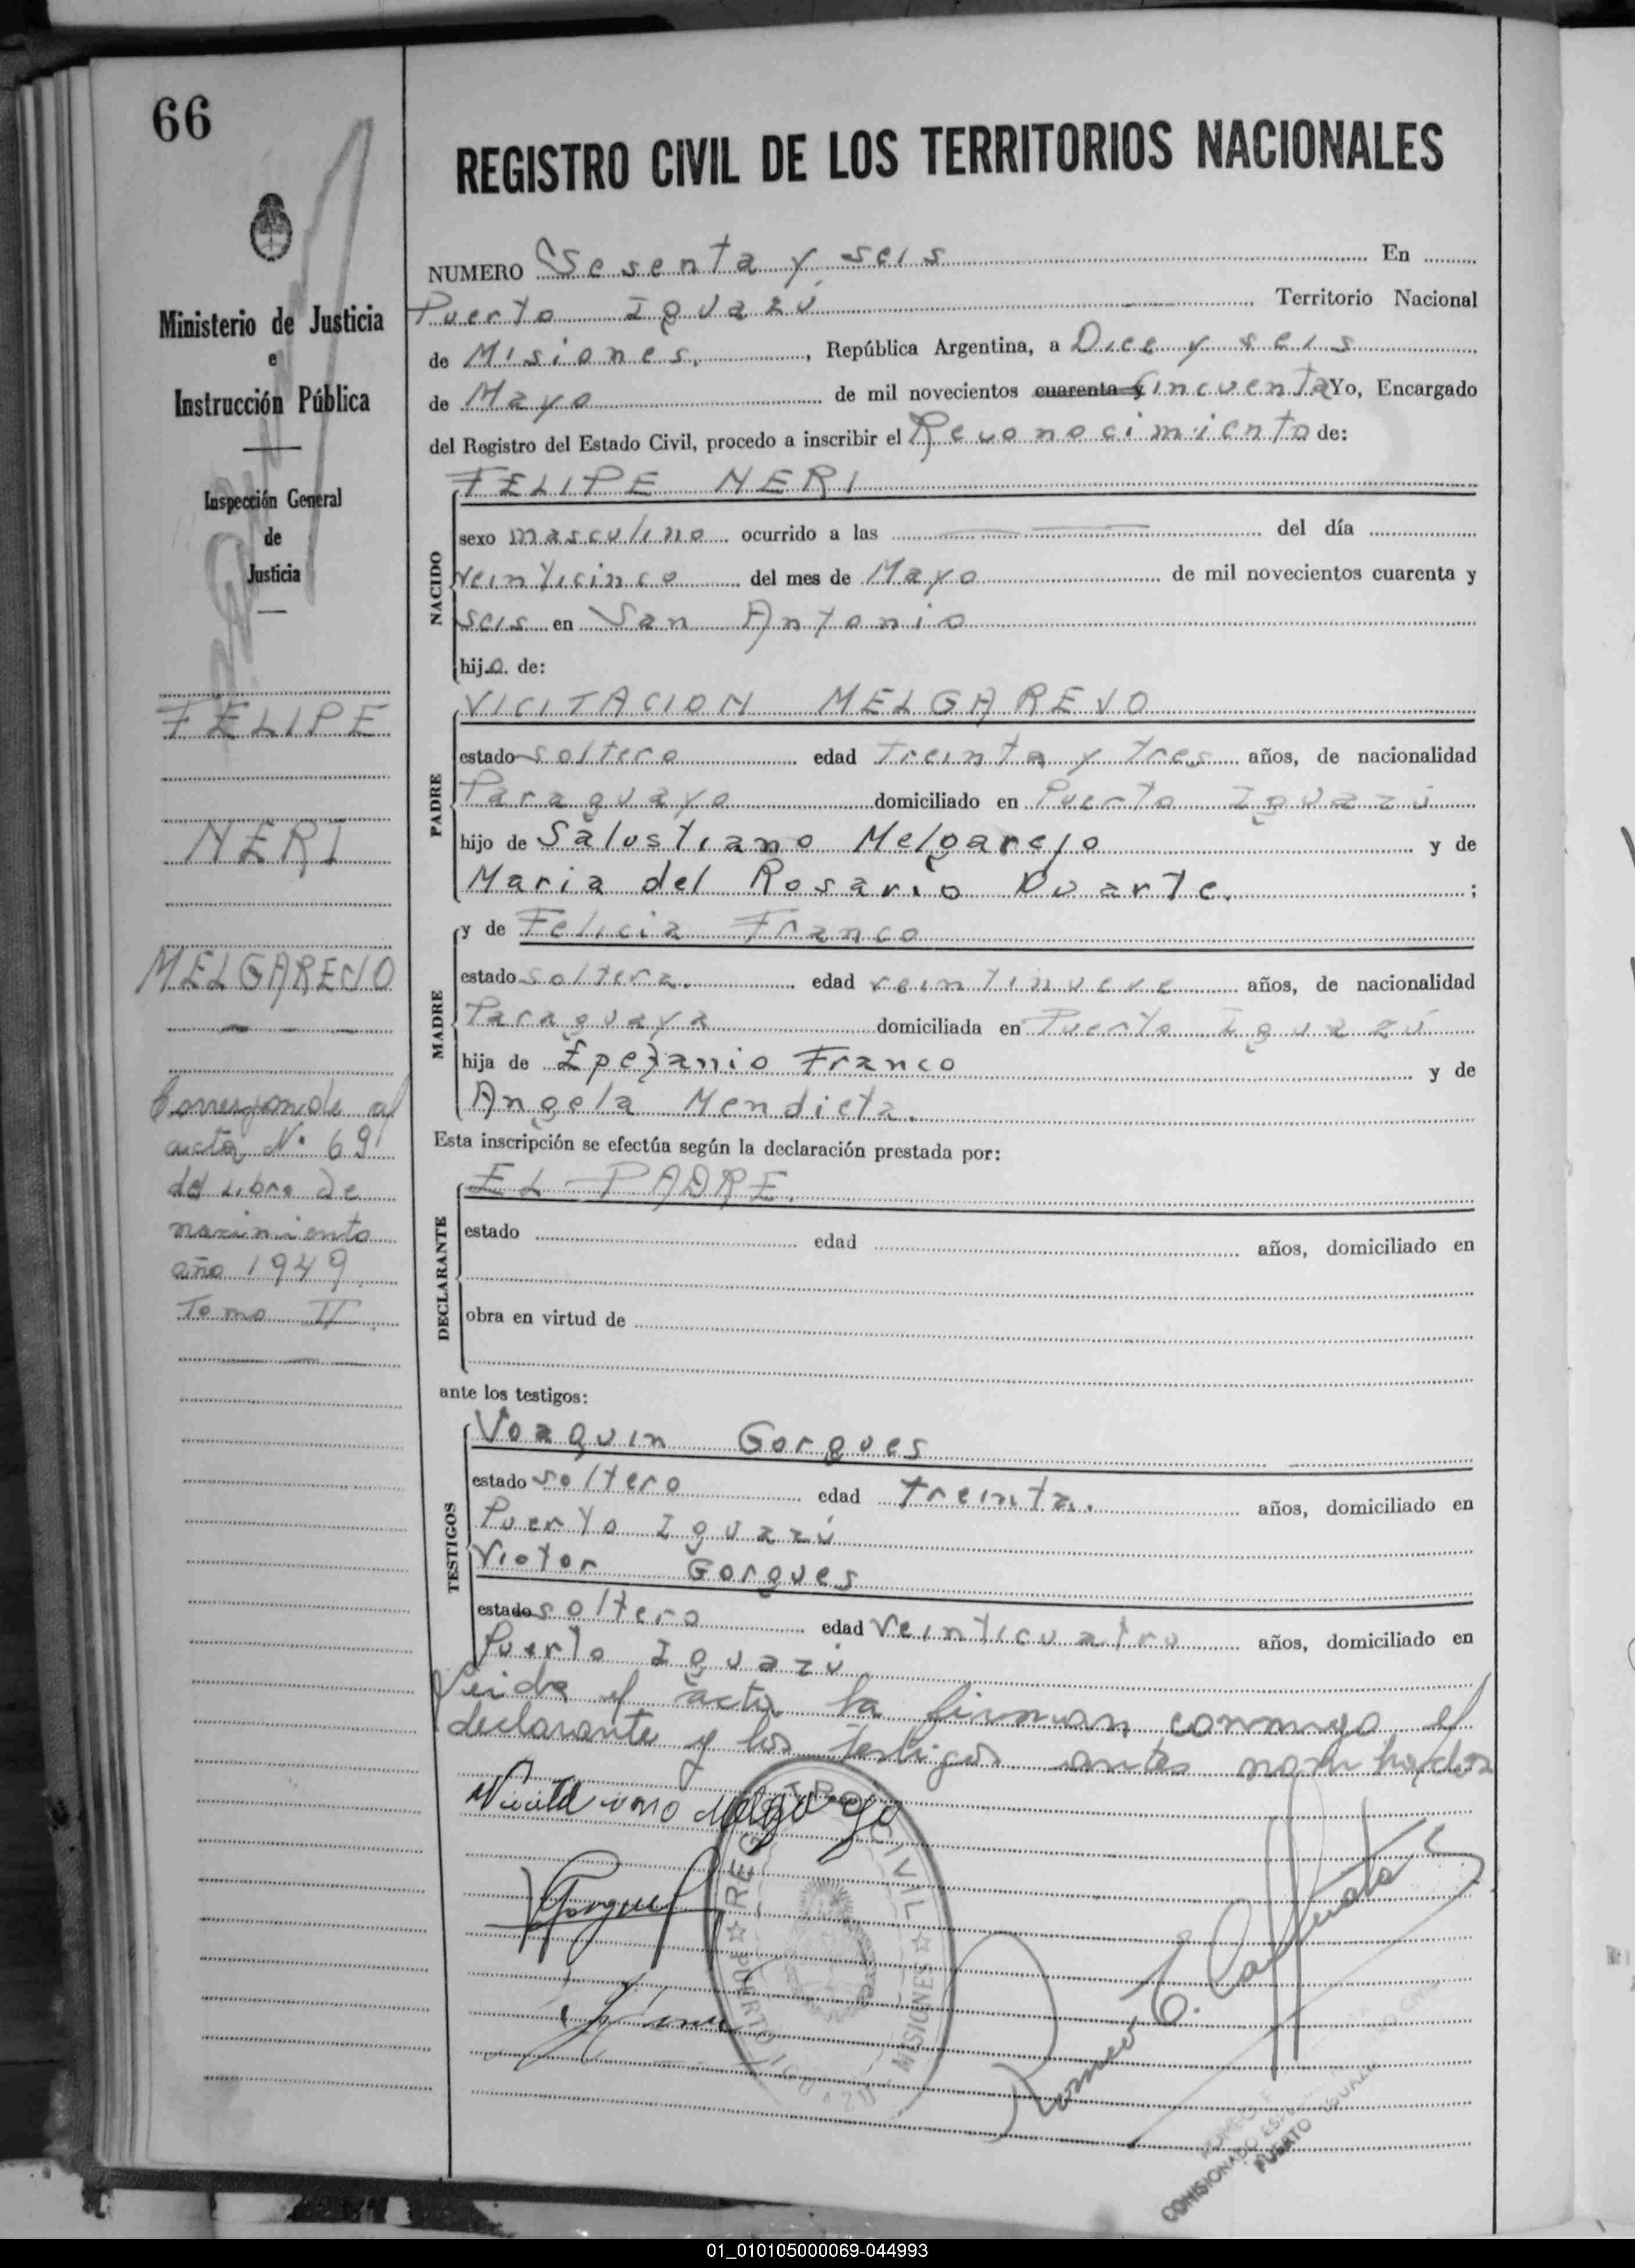 66
REGISTRO CIVIL DE LOS TERRITORIOS NACIONALES
Ministerio de Justicia
e
Instrucción Pública
Inspección General
de
Justicia
FELIPE
NERI
MELGAREJO
Corresponde al
acta Nº 69
del Libro de
nacimiento
año 1949
Tomo II
NUMERO Sesenta y seis En
Puerto Iguazú Territorio Nacional
de Misiones, República Argentina, a Diez y seis
de Mayo de mil novecientos cuarenta y Cincuenta Yo, Encargado
del Registro del Estado Civil, procedo a inscribir el Reconocimiento de:
NACIDO
FELIPE NERI
sexo masculino ocurrido a las del día
veinticinco del mes de Mayo de mil novecientos cuarenta y
seis en San Antonio
hijo de:
PADRE
VICITACION MELGAREJO
estado soltero edad treinta y tres años, de nacionalidad
Paraguayo domiciliado en Puerto Iguazú
hijo de Salustiano Melgarejo y de
Maria del Rosario Duarte. ;
MADRE
y de Felicia Franco
estado soltera. edad veintinueve años, de nacionalidad
Paraguaya domiciliada en Puerto Iguazú
hija de Epefanio Franco y de
Angela Mendieta.
Esta inscripción se efectúa según la declaración prestada por:
DECLARANTE
EL PADRE.
estado edad años, domiciliado en
obra en virtud de
ante los testigos:
TESTIGOS
Joaquin Gorgues
estado soltero edad treinta. años, domiciliado en
Puerto Iguazú
Victor Gorgues
estado soltero edad veinticuatro años, domiciliado en
Puerto Iguazú
Leida el acta la firman conmigo el
declarante y los testigos antes nombrados
REGISTRO CIVIL
PUERTO IGUAZU MISIONES
Romeo E.
COMISIONADO
PUERTO IGUAZU
01_010105000069-044993